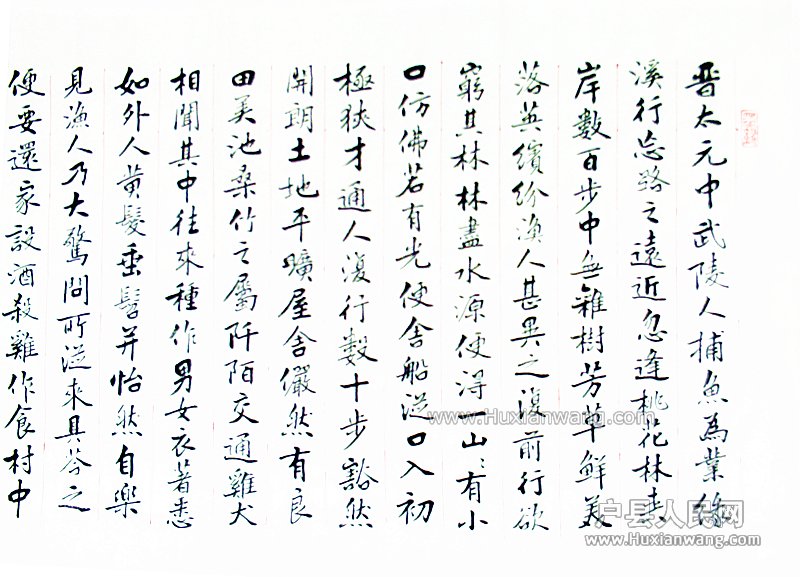 晉太元中武陵人捕魚為業緣
溪行忘路之遠近忽逢桃花林夹
岸數百步中無雜樹芳草鮮美
落英繽紛漁人甚異之復前行欲
窮其林林盡水源便得一山々有小
口仿佛若有光便舍船從口入初
極狹才通人復行数十步豁然
開朗土地平曠屋舍儼然有良
田美池桑竹之屬阡陌交通雞犬
相聞其中往來種作男女衣著悉
如外人黄髮垂髫并怡然自樂
見漁人乃大驚問所從來具答之
便要還家設酒殺雞作食村中
www.Huxianwang.com
户县人民网
www.Huxianwang.com